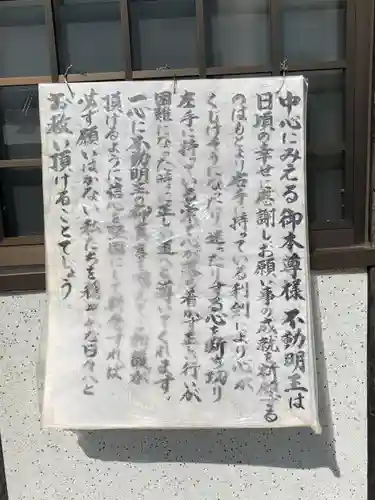 中心にみえる御本尊様 不動明王は
日頃の幸せに感謝しお願い事の成就を祈願する
のはもとより右手に持っている利剣により心が
くじけそうになったり、迷ったりする心を断ち切り
左手に持って
困難になった時に正しい道へと導いてくれます。
一心に不動明王の御
頂けるように信心を堅固にして祈
必ず願いはかない私たちを穏やかな日々へと
お救い頂けることでしょう